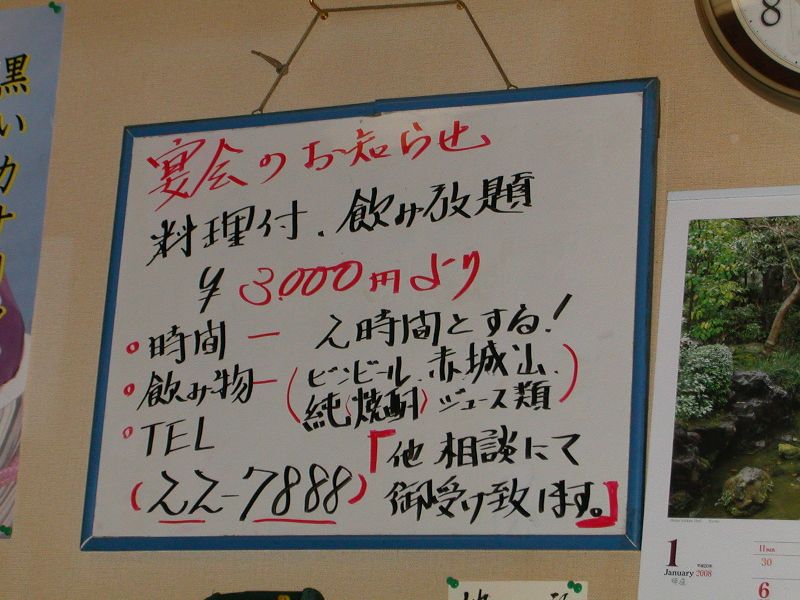 宴会のお知らせ
料理付、飲み放題
¥3.000円より
・時間ー 2時間とする!
・飲み物ー(ビンビール、赤城山、
純〈焼酎〉ジュース類)
・TEL
(22-7888)
「他相談にて
御受け致します。」
黒い
8
1
January 2008
30
6